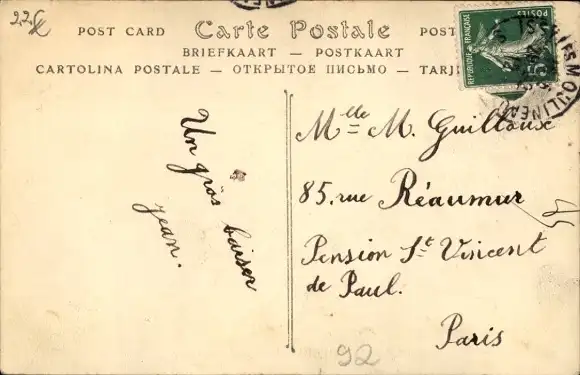 22
POST CARD Carte Postale POST
BRIEFKAART — POSTKAART
CARTOLINA POSTALE — ОТКРЫТОЕ ПИСЬМО — TARJ
REPUBLIQUE FRANÇAISE
POSTES
5
MOULINEAU
Un gros baiser
Jean.
Mlle M. Guillouse
85. rue Réaumur
Pension St Vincent
de Paul.
Paris
92